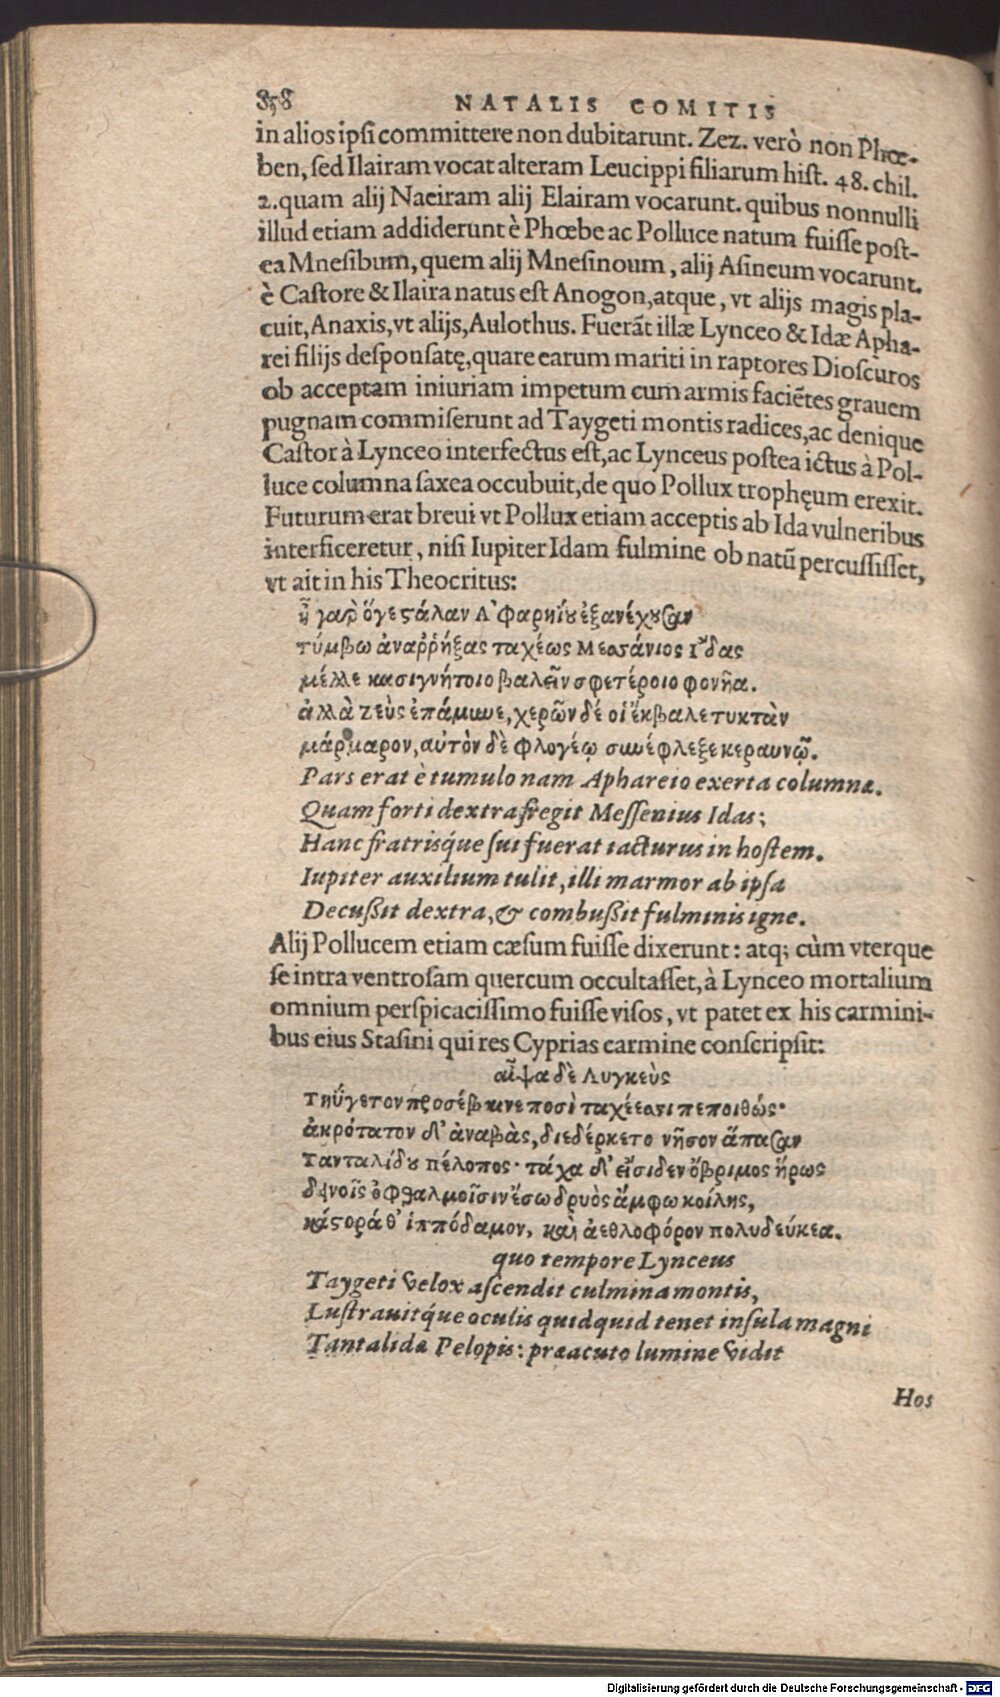 858 NATALIS COMITIS
in alios ipsi committere non dubitarunt. Zez. verò non Phœ-
ben, sed Ilairam vocat alteram Leucippi filiarum hist. 48. chil.
2. quam alij Naeiram alij Elairam vocarunt. quibus nonnulli
illud etiam addiderunt è Phœbe ac Polluce natum fuisse post-
ea Mnesibum, quem alij Mnesinoum, alij Asineum vocarunt.
è Castore & Ilaira natus est Anogon, atque, vt alijs magis pla-
cuit, Anaxis, vt alijs, Aulothus. Fuerãt illæ Lynceo & Idæ Apha-
rei filijs desponsatę, quare earum mariti in raptores Dioscùros
ob acceptam iniuriam impetum cum armis faciẽtes grauem
pugnam commiserunt ad Taygeti montis radices, ac denique
Castor à Lynceo interfectus est, ac Lynceus postea ictus à Pol-
luce columna saxea occubuit, de quo Pollux trophęum erexit.
Futurum erat breui vt Pollux etiam acceptis ab Ida vulneribus
interficeretur, nisi Iupiter Idam fulmine ob natũ percussisset,
vt ait in his Theocritus:
ἦ γαρ ὅγε στάλαν Ἀφαρηΐου ἐξανέχουσαν
τύμβω ἀναῤῥήξας ταχέως Μεσσάνιος Ἴδας
μέλλε κασιγνήτοιο βαλεῖν σφετέροιο φονῆα.
ἀλλὰ Ζεὺς ἐπάμυνε, χερῶν δέ οἱ ἔκβαλε τυκτὰν
μάρμαρον, αὐτὸν δὲ φλογέῳ συνέφλεξε κεραυνῷ.
Pars erat è tumulo nam Aphareio exerta columnæ.
Quam forti dextra fregit Messenius Idas;
Hanc fratrisq́ue sui fuerat iacturus in hostem.
Iupiter auxilium tulit, illi marmor ab ipsa
Decussit dextra, & combussit fulminis igne.
Alij Pollucem etiam cæsum fuisse dixerunt: atq; cùm vterque
se intra ventrosam quercum occultasset, à Lynceo mortalium
omnium perspicacissimo fuisse visos, vt patet ex his carmini-
bus eius Stasini qui res Cyprias carmine conscripsit:
αἶψα δὲ Λυγκεὺς
Τηΰγετον προσέβαινε ποσὶ ταχέεσσι πεποιθώς·
ἀκρότατον δ' ἀναβὰς, διεδέρκετο νῆσον ἅπασαν
Τανταλίδου πέλοπος· τάχα δ' εἴσιδεν ὄβριμος ἥρως
δεινοῖς ὀφθαλμοῖσιν ἔσω δρυὸς ἄμφω κοίλης,
κάστορά θ' ἱππόδαμον, καὶ ἀεθλοφόρον πολυδεύκεα.
quo tempore Lynceus
Taygeti velox ascendit culmina montis,
Lustrauitq́ue oculis quidquid tenet insula magni
Tantalidæ Pelopis: præacuto lumine vidit
Hos
Digitalisierung gefördert durch die Deutsche Forschungsgemeinschaft - DFG